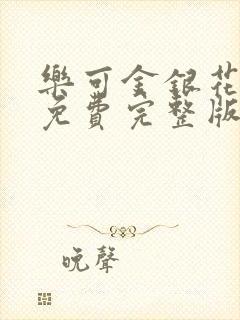 樂可金銀花
免費完整版
晚聲